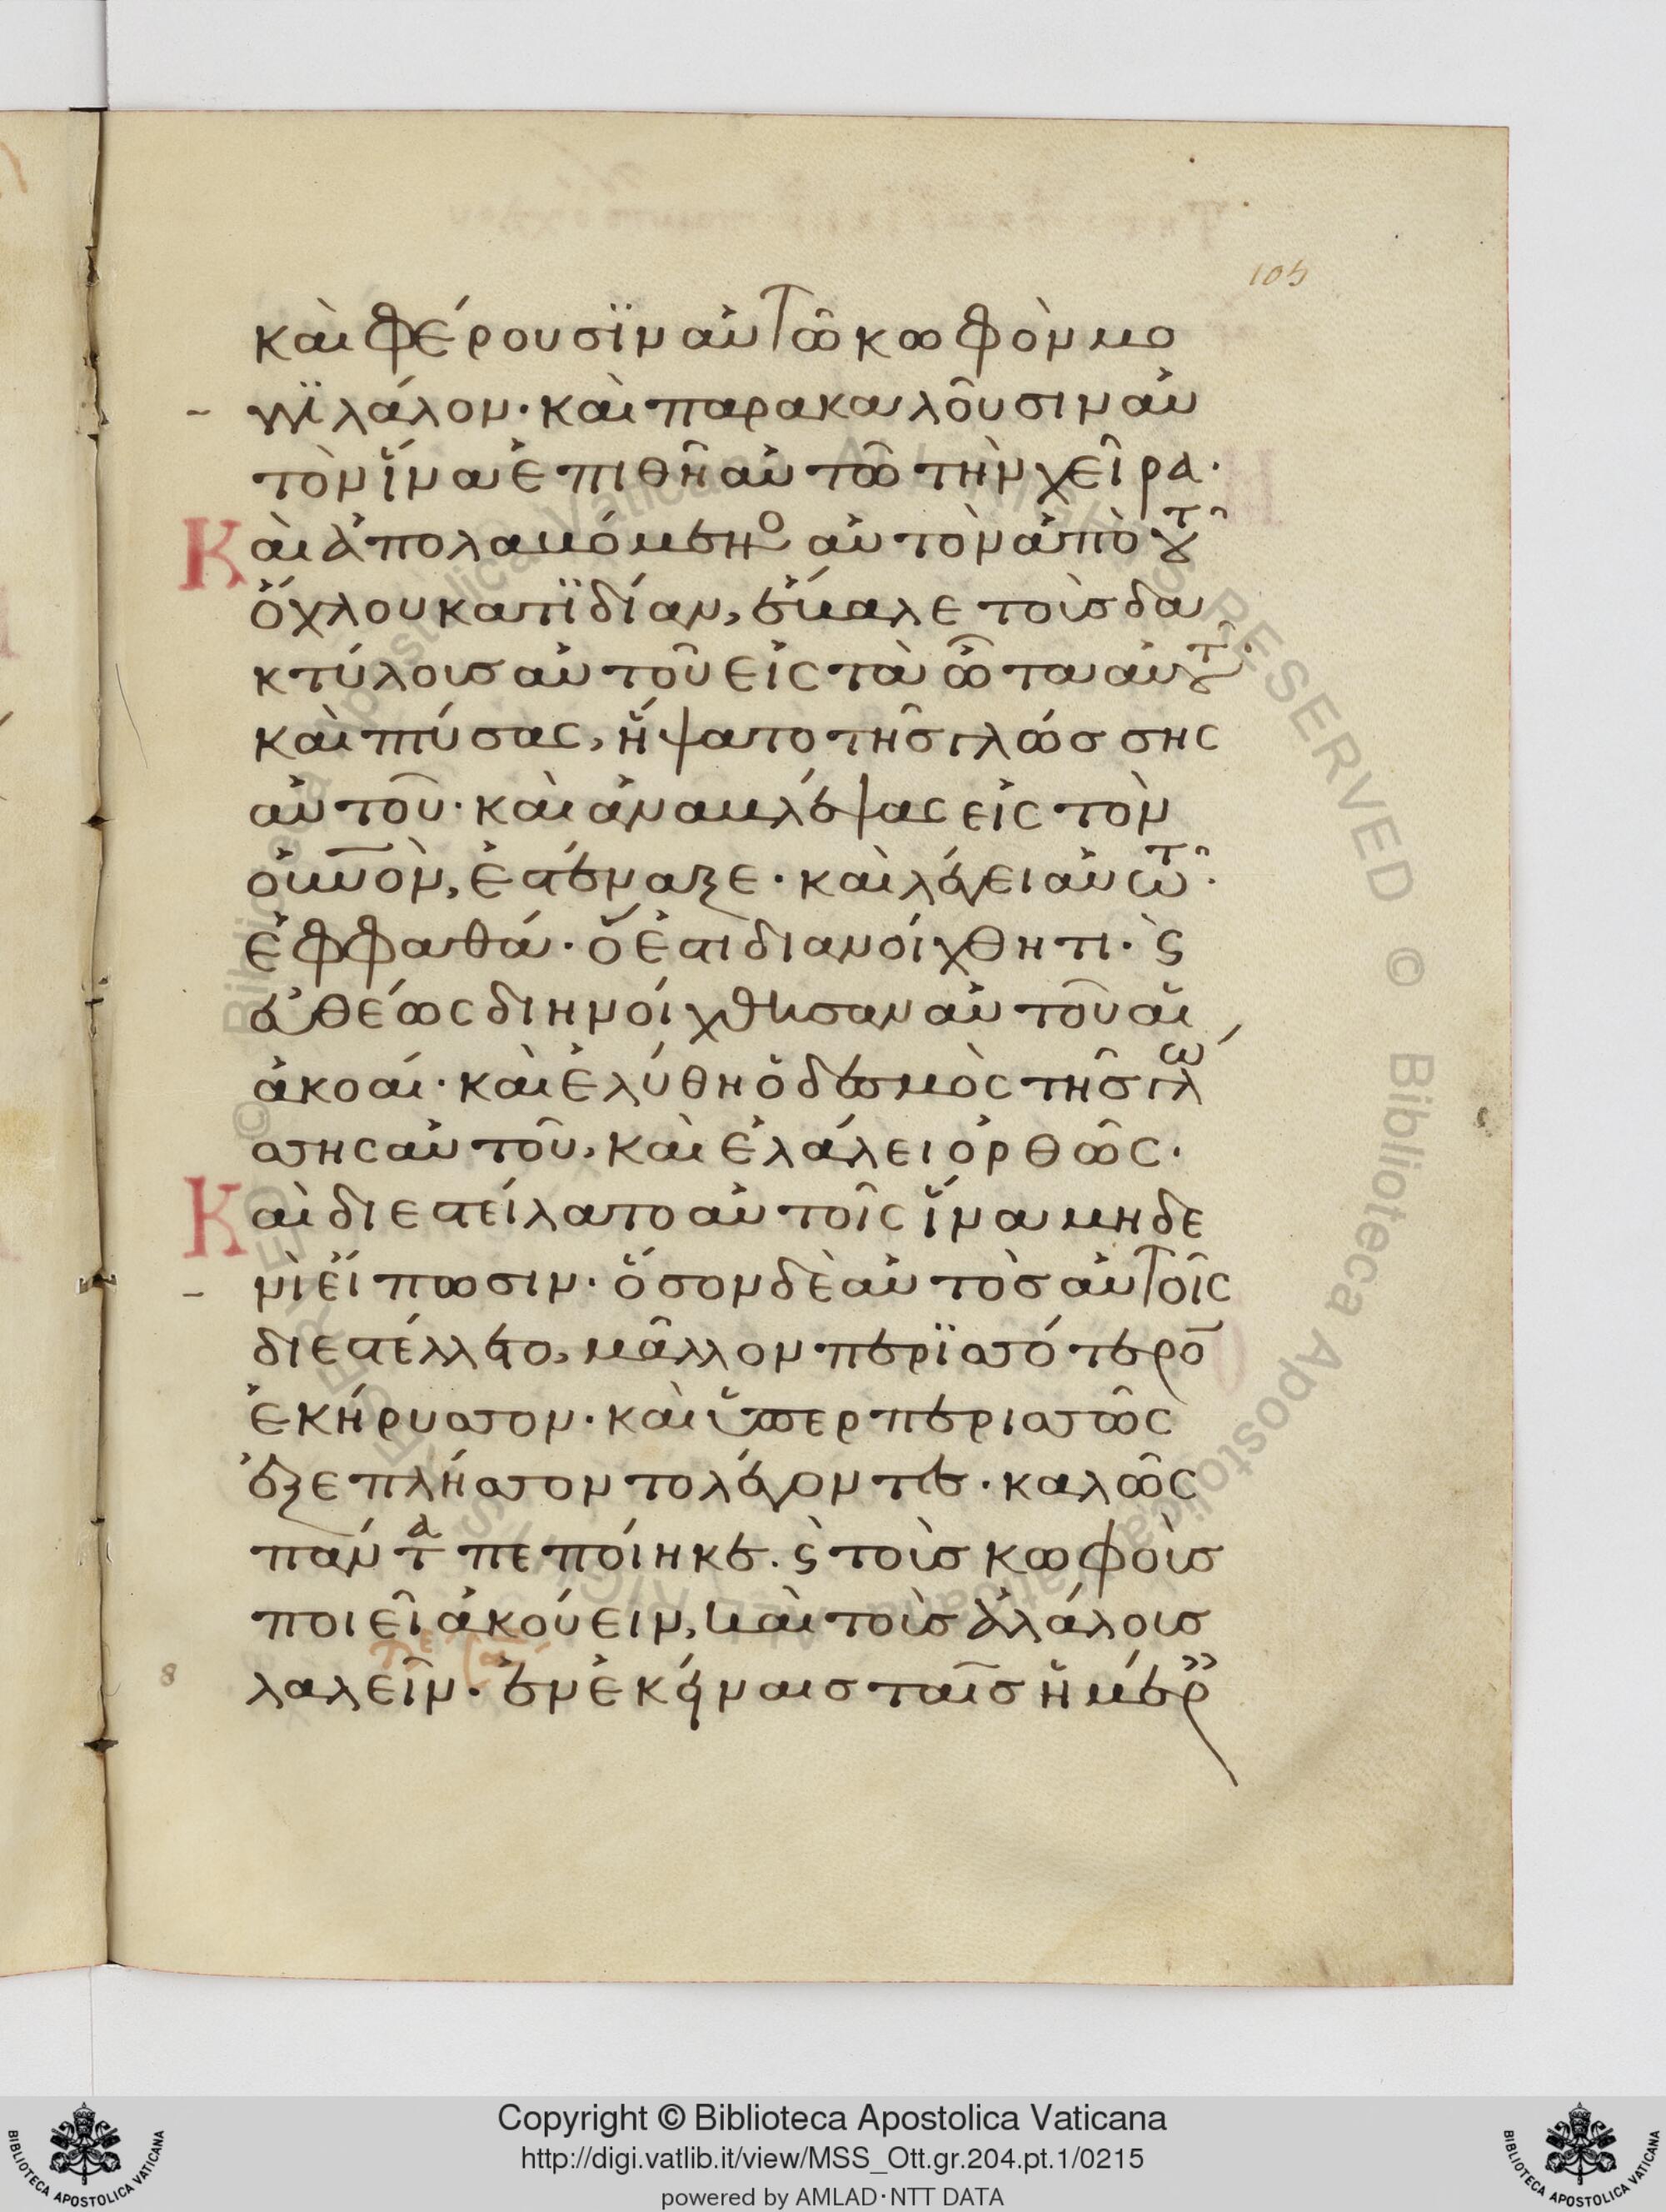 105
καὶ φέρουσϊν αὐτῶ κωφὸν μο
γγϊλάλον· καὶ παρακαλοῦσιν αὐ
τὸν ἵνα ἐπιθῆ αὐτῶ τὴν χεῖρα·
Καὶ ἀπολαβόμενο αὐτὸν ἀπὸ τοῦ
ὄχλου κατϊδίαν, ἔβαλε τοὺσ δα
κτύλουσ αὐτοῦ εἰς τὰ ὦτα αὐτοῦ·
καὶ πτύσας, ἥψατο τῆσ γλώσσης
αὐτοῦ· καὶ ἀναβλέψας εἰς τὸν
οὐνὸν, ἐστέναξε· καὶ λέγει αὐτῶ·
ἐφφαθά· ὅ ἐστι διανοίχθητι· ϛ
εὐθέως διηνοίχθησαν αὐτοῦ αἱ
ἀκοαί· καὶ ἐλύθη ὁ δεσμὸς τῆσ γλώ
σσης αὐτοῦ, καὶ ἐλάλει ὀρθῶς·
Καὶ διεστείλατο αὐτοῖς ἵνα μηδε
νὶ εἴπωσιν· ὅσον δὲ αὐτὸσ αὐτοῖς
διεστέλλετο, μᾶλλον περϊσσότερο
ἐκήρυσσον· καὶ ὑπερπερισσῶς
ἐξεπλήσσοντο λέγοντες· καλῶς
πάντα πεποίηκε· ϛ τοὺσ κωφοὺσ
ποιεῖ ἀκούειν, καὶ τοὺσ ἀλάλουσ
λαλεῖν· ἐν ἐκείναισ ταῖσ ἡμέρ
Copyright © Biblioteca Apostolica Vaticana
http://digi.vatlib.it/view/MSS_Ott.gr.204.pt.1/0215
powered by AMLAD·NTT DATA
BIBLIOTECA APOSTOLICA VATICANA
BIBLIOTECA APOSTOLICA VATICANA